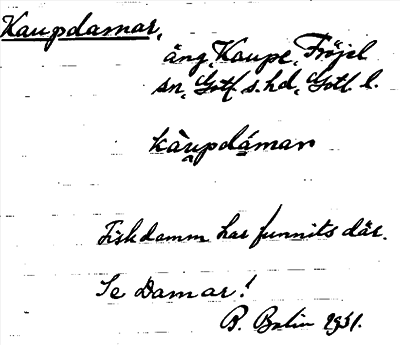 Kaupdamar,
äng, Kaupe, Fröjel
sn, Gotl. s. hd, Gotl. l.
kàu̯pdámar
Fiskdamm har funnits där.
Se Damar!
B. 1931.